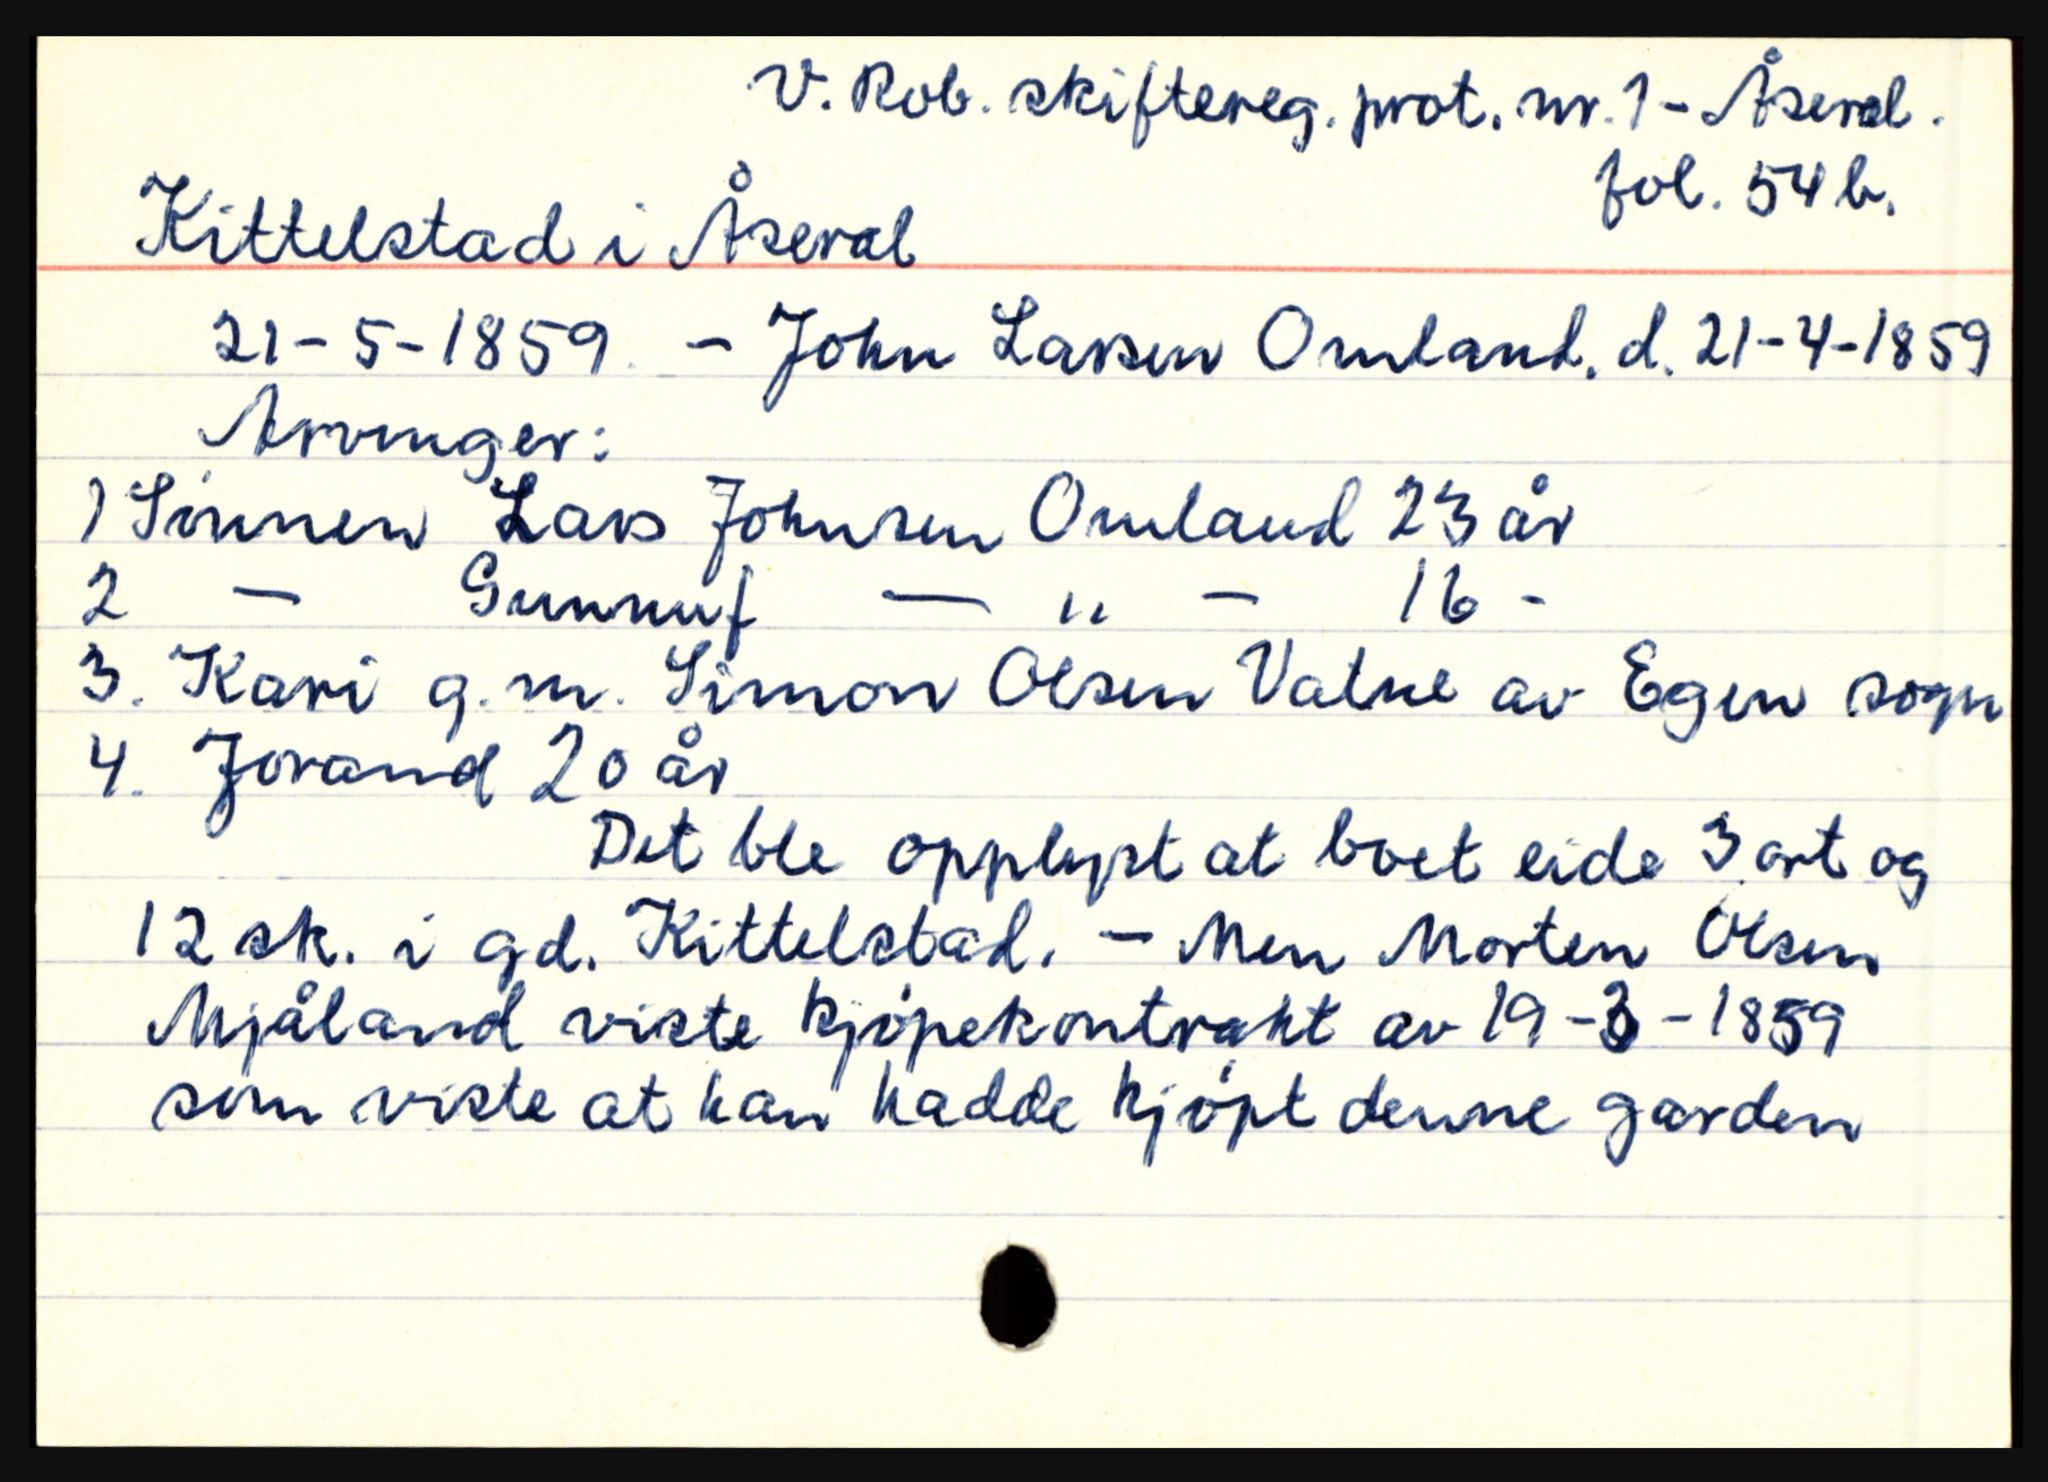 V. Rob. skiftereg. prot. nr. 1 - Åseral.
fol. 54 b.
Kittelstad i Åseral
21-5-1859. - John Larsen Omland. d. 21-4-1859
Arvinger:
1 Sönnen Lars Johnsen Omland 23 år
2 — Gunnuf — " - 16 -
3. Kari g. m. Simon Olsen Vatne av Egen sogn
4. Jorand 20 år
Det ble opplyst at boet eide 3 ort og
12 sk. i gd. Kittelstad. - Men Morten Olsen
Mjåland viste kjöpekontrakt av 19-3-1859
som viste at han hadde kjöpt denne garden